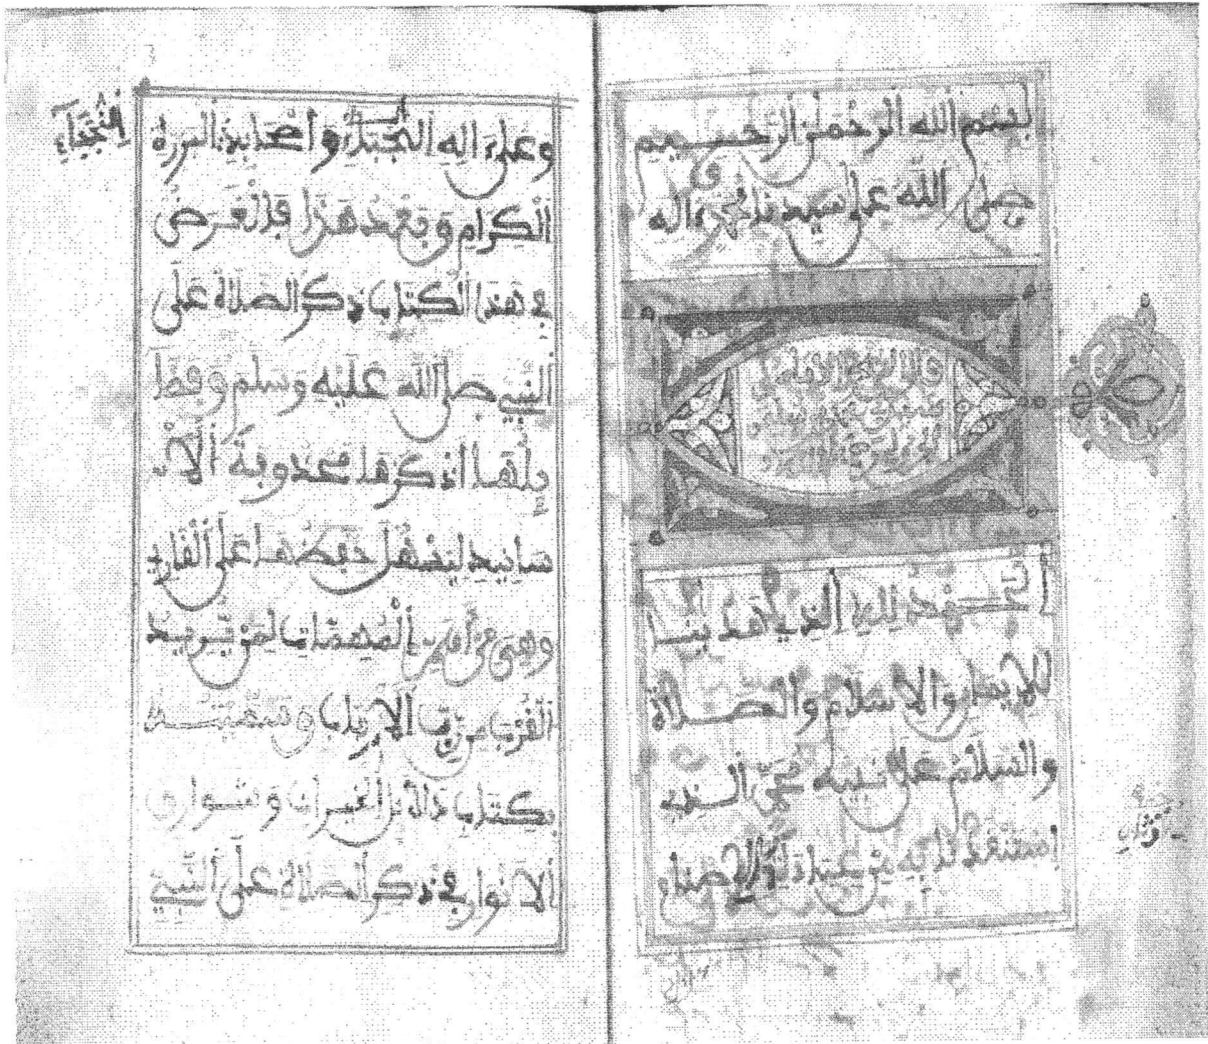 بسم الله الرحمن الرحيم
صلى الله على سيدنا محمد وءاله
الحمد لله الذي هدينا
للايمان والاسلام والصلاة
والسلام على نبيه محمد الذي
استنقذنا به من عبادة الاصنام
وعلى ءاله النجباء واصحابه البررة
النجباء
الكرام وبعد هذا فالغرض
في هذا الكتاب ذكر الصلاة على
النبي صلى الله عليه وسلم وفضا
ئلها اذكرها محذوفة الا
سانيد ليسهل حفظها على القارئ
وهي من اهم المهمات لمن يريد
القرب من رب الارباب وسميته
بكتاب دلائل الخيرات وشوارق
الانوار في ذكر الصلاة على النبي